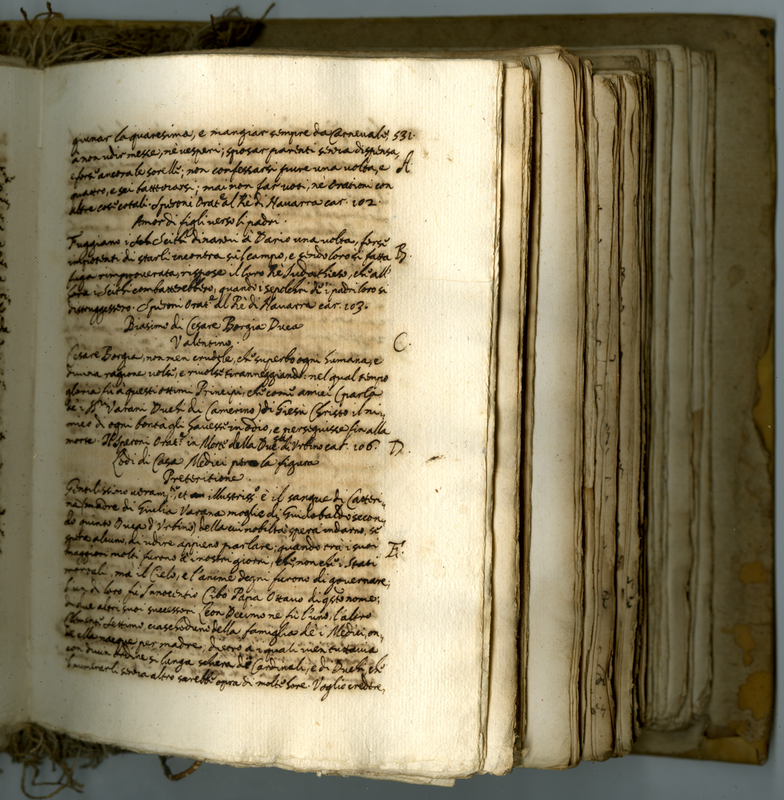 giunar la quaresima, e mangiar sempre da Carnevale, 531.
à non udir messe, nè vesperi; sposar parenti senza dispensa,
e forse ancora le sorelle; non confessarsi pure una volta, e A
quattro, e sei battezzarsi; mai non far voti, nè orationi con
altre cose cotali. Speroni Orat.e al Rè di Navarra car. 102.
Amor di figli verso li padri.
Fuggiano i Sciti dinanzi à Dario una volta, forse
impotenti di starli incontra su'l campo, e sendo loro si fatta B.
fuga rimproverata, rispose il loro Rè che all'
hora i Sciti combatterebbero, quando i sepolchri de' i padri loro si
distruggessero. Speroni Orat.e al Rè di Navarra car. 103.
Biasimo di Cesare Borgia Duca
Valentino. C.
Cesare Borgia, non men crudele, che superbo ogni humana, e
divina ragione volse, e rivolse tiranneggiando: nel qual tempo
gloria fù à questi ottimi Principi, che come amici (parla
de' i Varani Duchi di Camerino) di Giesù Christo il ni-
mico di ogni bontà gli havesse in odio, e perseguisse fin alla
morte. Speroni Orat.e in Morte della Duc.sa di Urbino car. 106. D.
Lodi di Casa Medici per la figura
Preteritione.
Gentilissimo veram.te, et illustriss.o è il sangue di Catteri-
na (madre di Giulia Varana moglie di Guidobaldo secon-
do quinto Duca d'Urbino) della cui nobiltà spera indarno, se
spera alcuno, di udire appieno parlare; quando tra i suoi E.
maggiori molti furono à i nostri giorni, che non che i stati
mortali, mà il Cielo, e l'anime degni furono di governare;
l'un di loro fù Innocentio Cibo Papa Ottavo di q.sto nome;
due altri suoi successori Leon Decimo ne fù l'uno, l'altro
Clemente Settimo, ciascheduno della famiglia de' i Medici, on-
de ella nacque per madre, dietro à i quali vien tuttavia
con divin ordine si lunga schera de' Cardinali, e di Duchi, che
i numerarli senza altro sarebbe opra di molte hore. Voglio credere,